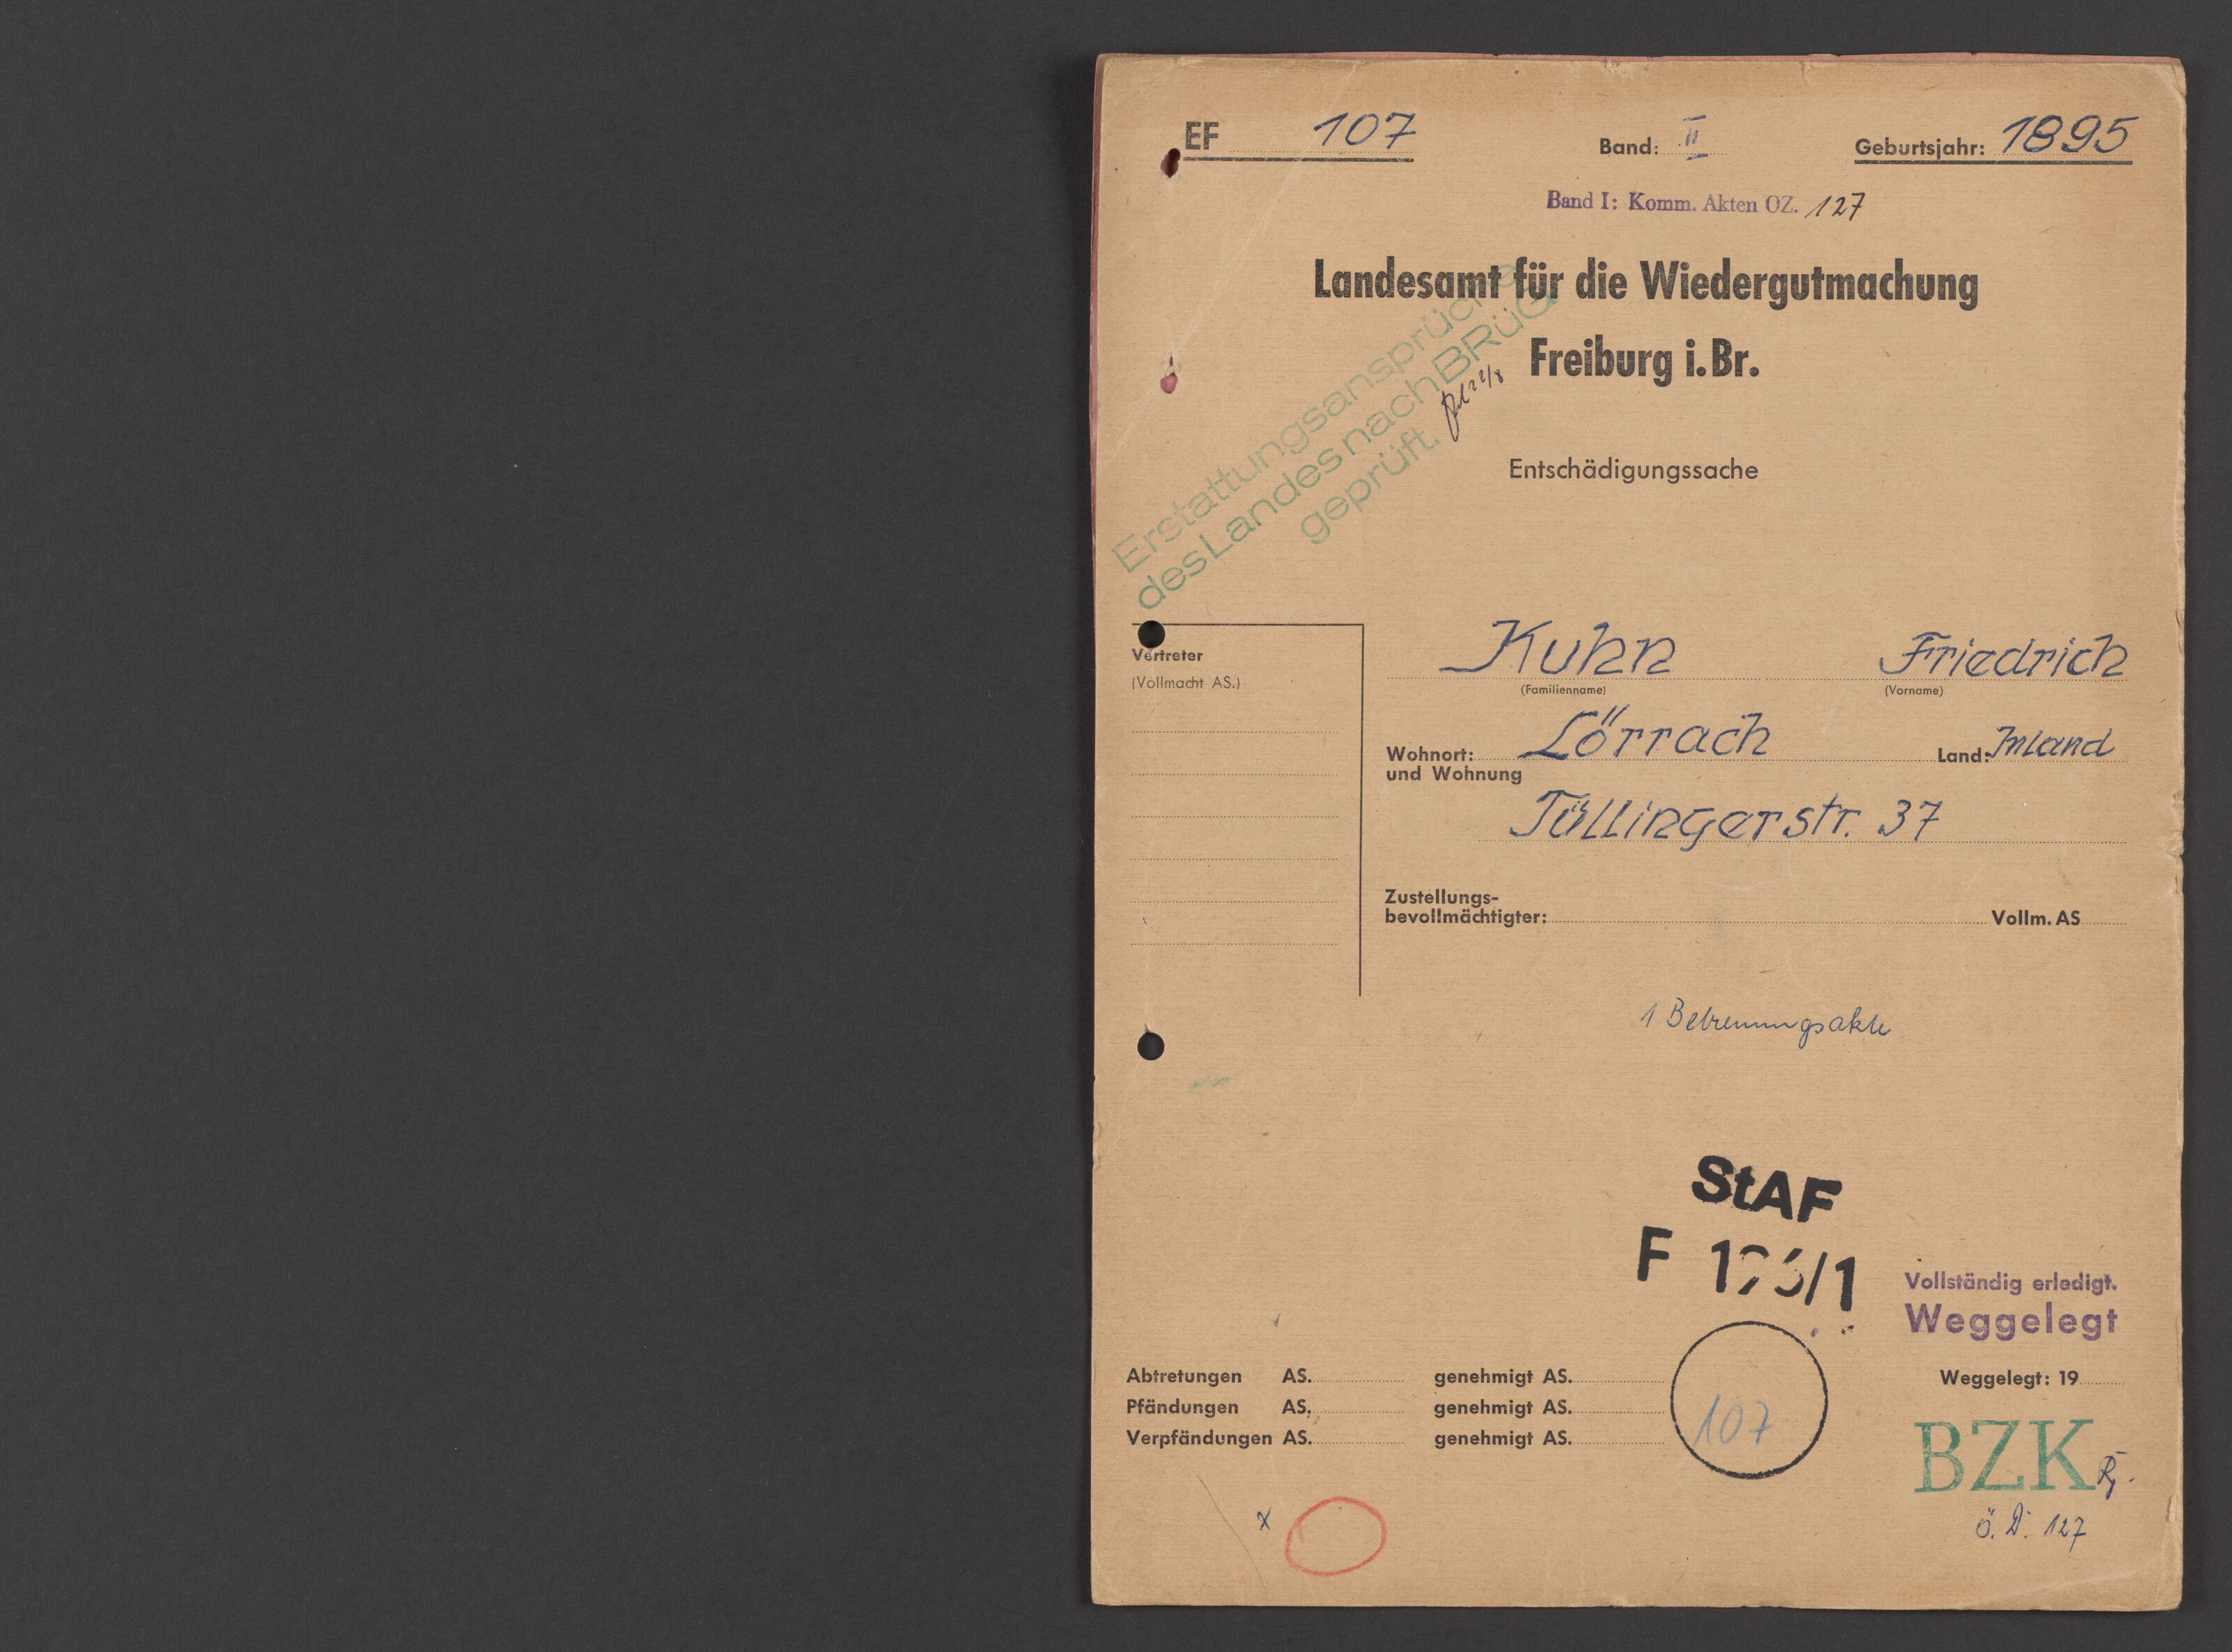 EF 107 Band: II Geburtsjahr: 1895
Band I: Komm. Akten OZ. 127
Landesamt für die Wiedergutmachung
Freiburg i. Br.
Erstattungsansprüche
des Landes nach BRüG
geprüft. 22/8
Entschädigungssache
Vertreter
(Vollmacht AS.)
Kuhn Friedrich
(Familienname) (Vorname)
Wohnort: Lörrach Land: Inland
und Wohnung
Tüllingerstr. 37
Zustellungs-
bevollmächtigter: Vollm. AS
1 Betreuungsakte
StAF
F 196/1
Vollständig erledigt.
Weggelegt
Abtretungen AS. genehmigt AS. Weggelegt: 19
Pfändungen AS. genehmigt AS.
Verpfändungen AS. genehmigt AS.
107
BZK
x
Ö. D. 127